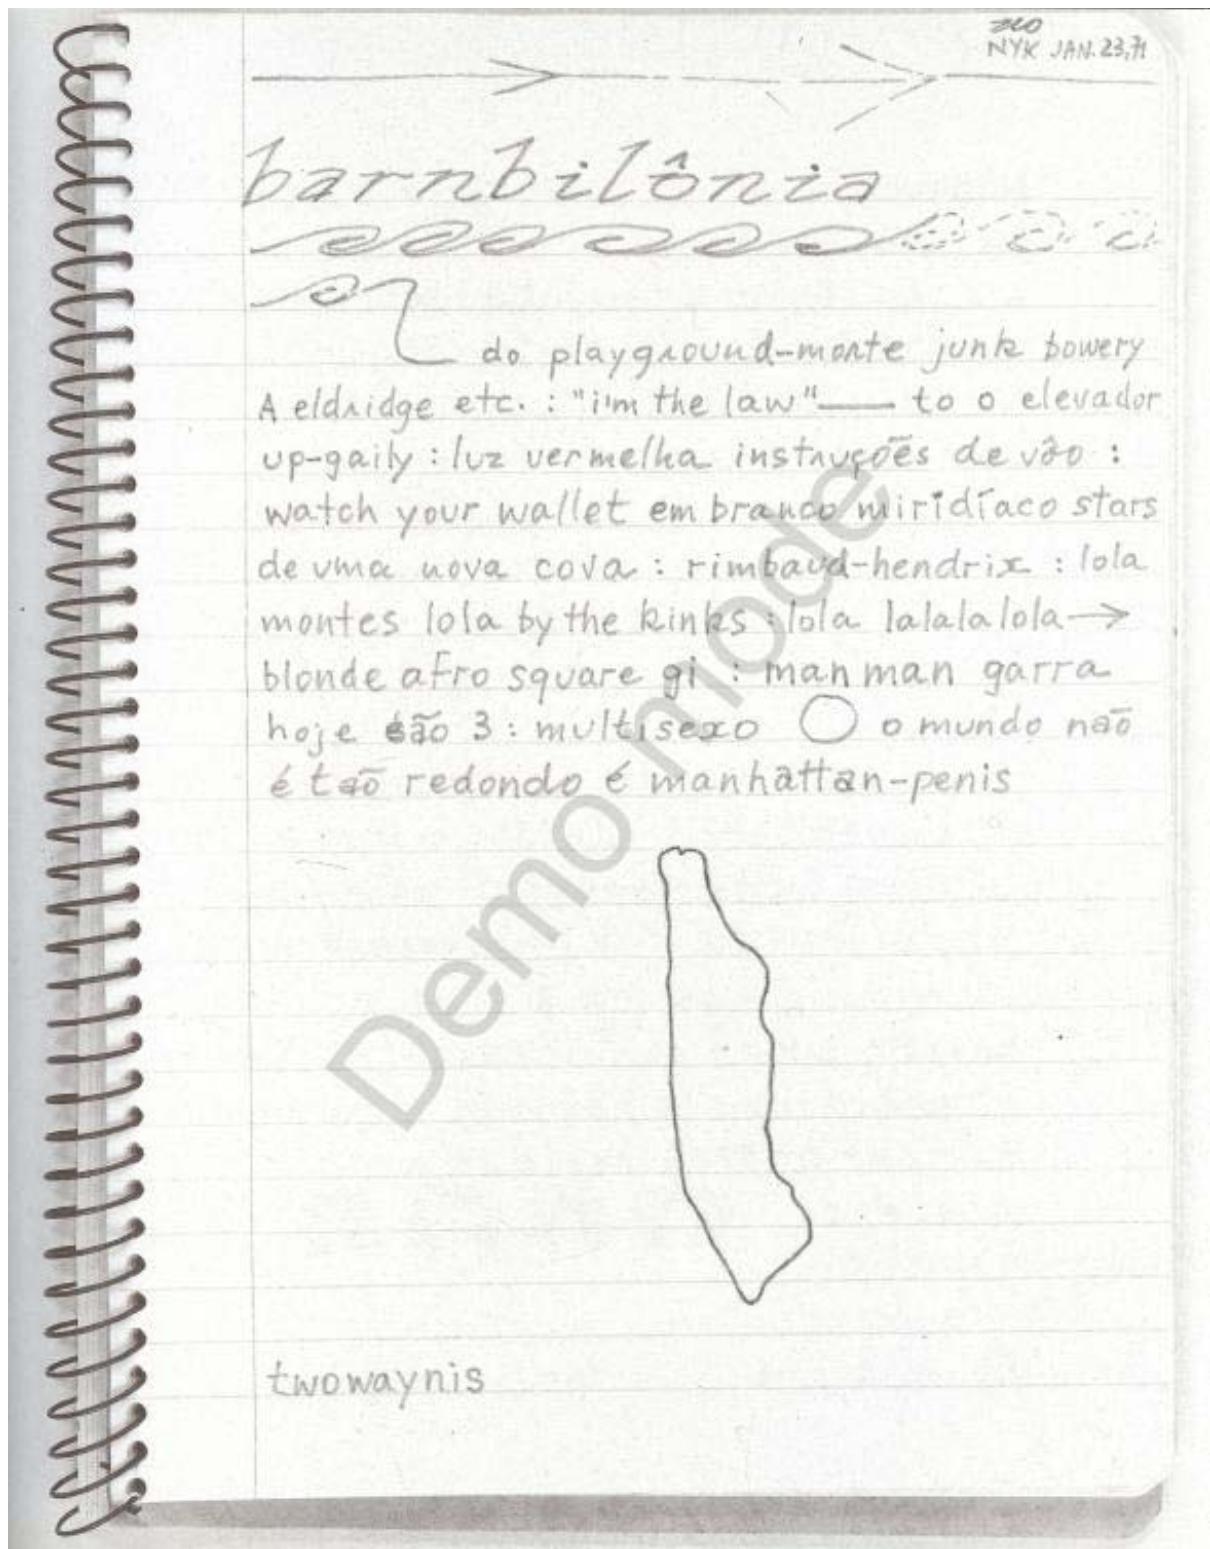 NYK JAN. 23, 71
barnbilônia
do playground-monte junk bowery
A eldridge etc. : "i'm the law" — to o elevador
up-gaily : luz vermelha instruções de vôo :
watch your wallet em branco miridíaco stars
de uma nova cova : rimbaud-hendrix : lola
montes lola by the kinks : lola lalalalola →
blonde afro square gi : man man garra
hoje são 3 : multisexo O o mundo não
é tão redondo é manhattan-penis
twowaynis
Demo mode